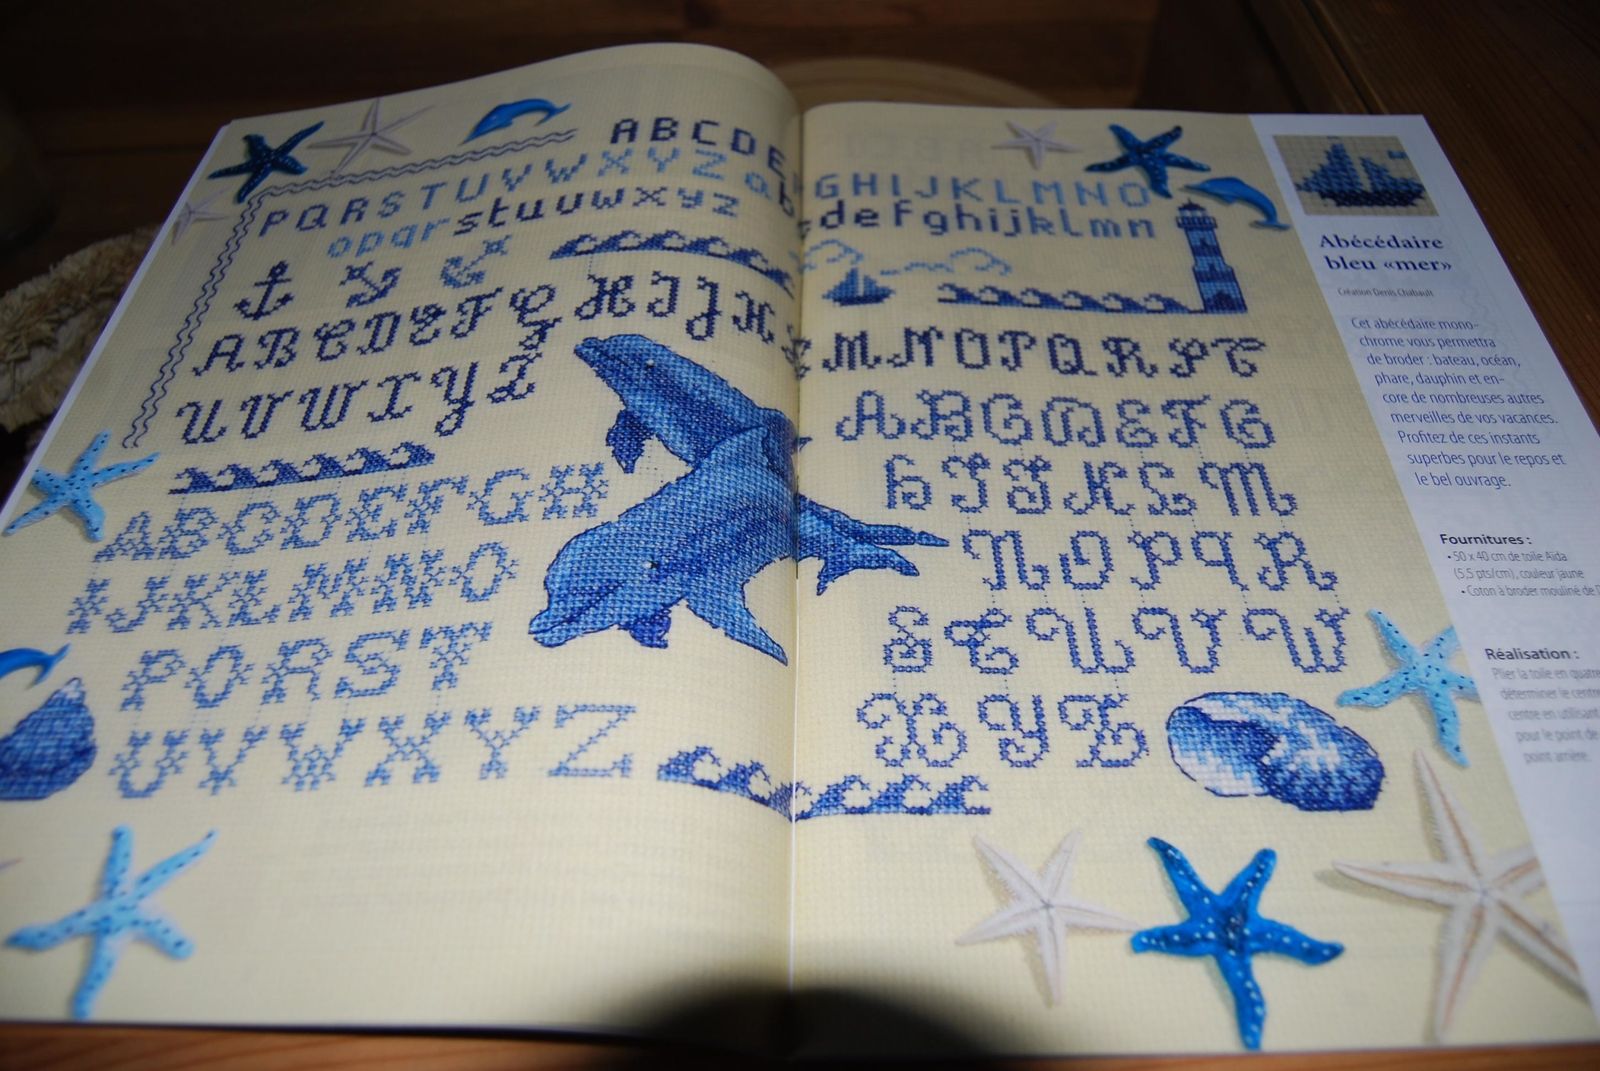 ABCDE
GHIJKLMNO
PQRSTUVWXYZ ab
defghijklmn
opqrstuvwxyz
ABCDEFG HIJK
MNOPQRST
UVWXYZ
ABCDEFG
HIJKLM
NOPQR
STUVW
XYZ
ABCDEFGH
IJKLMNO
PQRST
UVWXYZ
Abécédaire
bleu «mer»
Création Denis Chabault
Cet abécédaire mono-
chrome vous permettra
de broder : bateau, océan,
phare, dauphin et en-
core de nombreuses autres
merveilles de vos vacances.
Profitez de ces instants
superbes pour le repos et
le bel ouvrage.
Fournitures :
• 50 x 40 cm de toile Aïda
(5,5 pts/cm), couleur jaune
• Coton à broder mouliné de
Réalisation :
Plier la toile en quatre
déterminer le centre
centre en utilisant
pour le point de
point arrière.